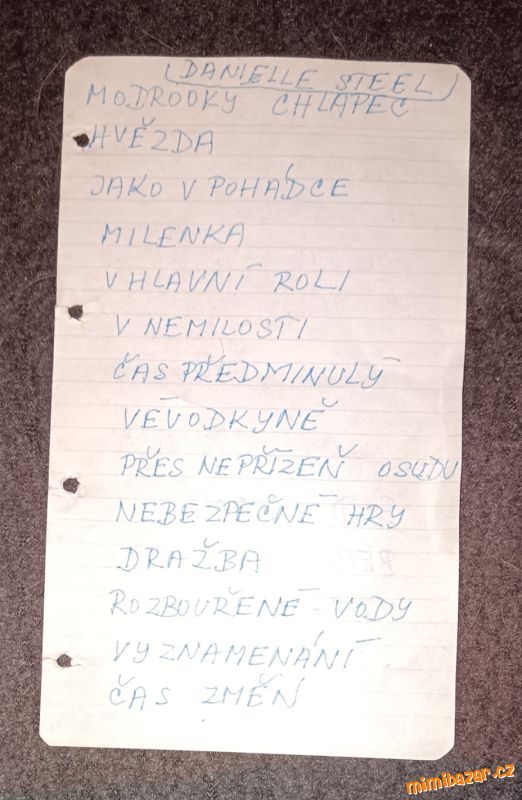 (DANIELLE STEEL)
MODROOKÝ CHLAPEC
HVĚZDA
JAKO V POHÁDCE
MILENKA
V HLAVNÍ ROLI
V NEMILOSTI
ČAS PŘEDMINULÝ
VÉVODKYNĚ
PŘES NEPŘÍZEŇ OSUDU
NEBEZPEČNÉ HRY
DRAŽBA
ROZBOUŘENÉ VODY
VYZNAMENÁNÍ
ČAS ZMĚN
mimibazar.cz